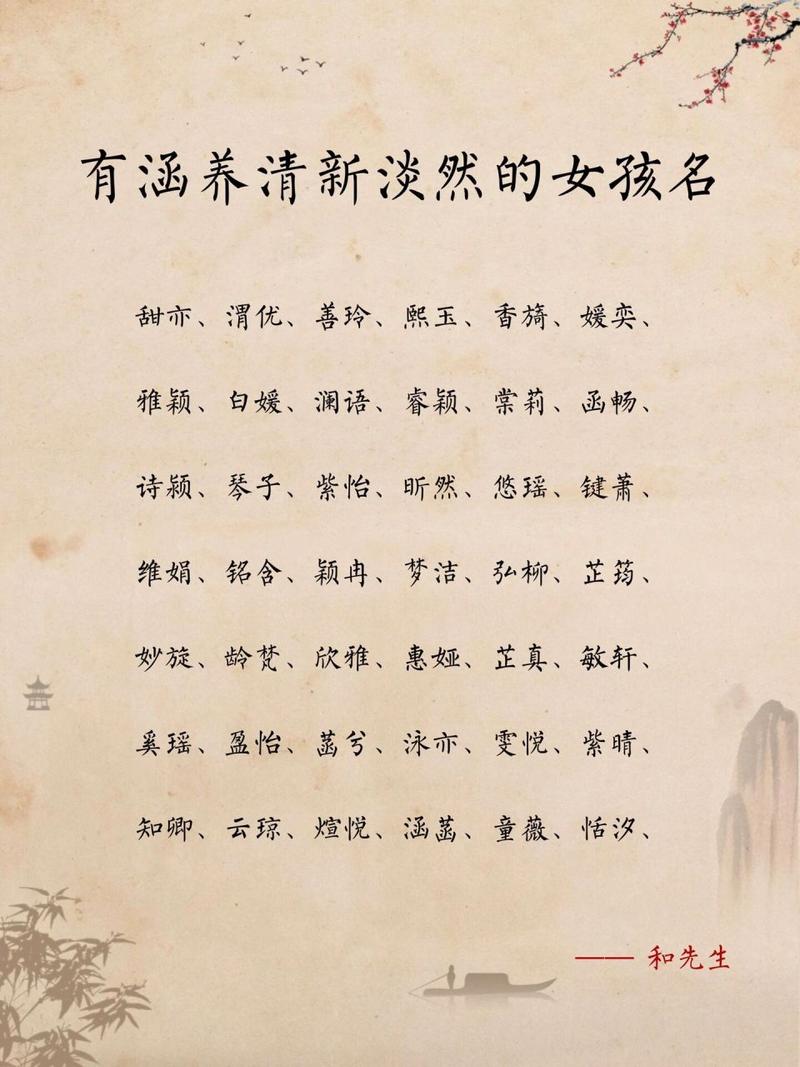 有涵养清新淡然的女孩名
甜亦、渭优、善玲、熙玉、香旖、媛奕、
雅颖、白媛、澜语、睿颖、棠莉、函畅、
诗颍、琴子、紫怡、昕然、悠瑶、键萧、
维娟、铭含、颖冉、梦洁、弘柳、芷筠、
妙旋、龄梵、欣雅、惠娅、芷真、敏轩、
奚瑶、盈怡、菡兮、泳亦、雯悦、紫晴、
知卿、云琼、煊悦、涵菡、童薇、恬汐、
—— 和先生